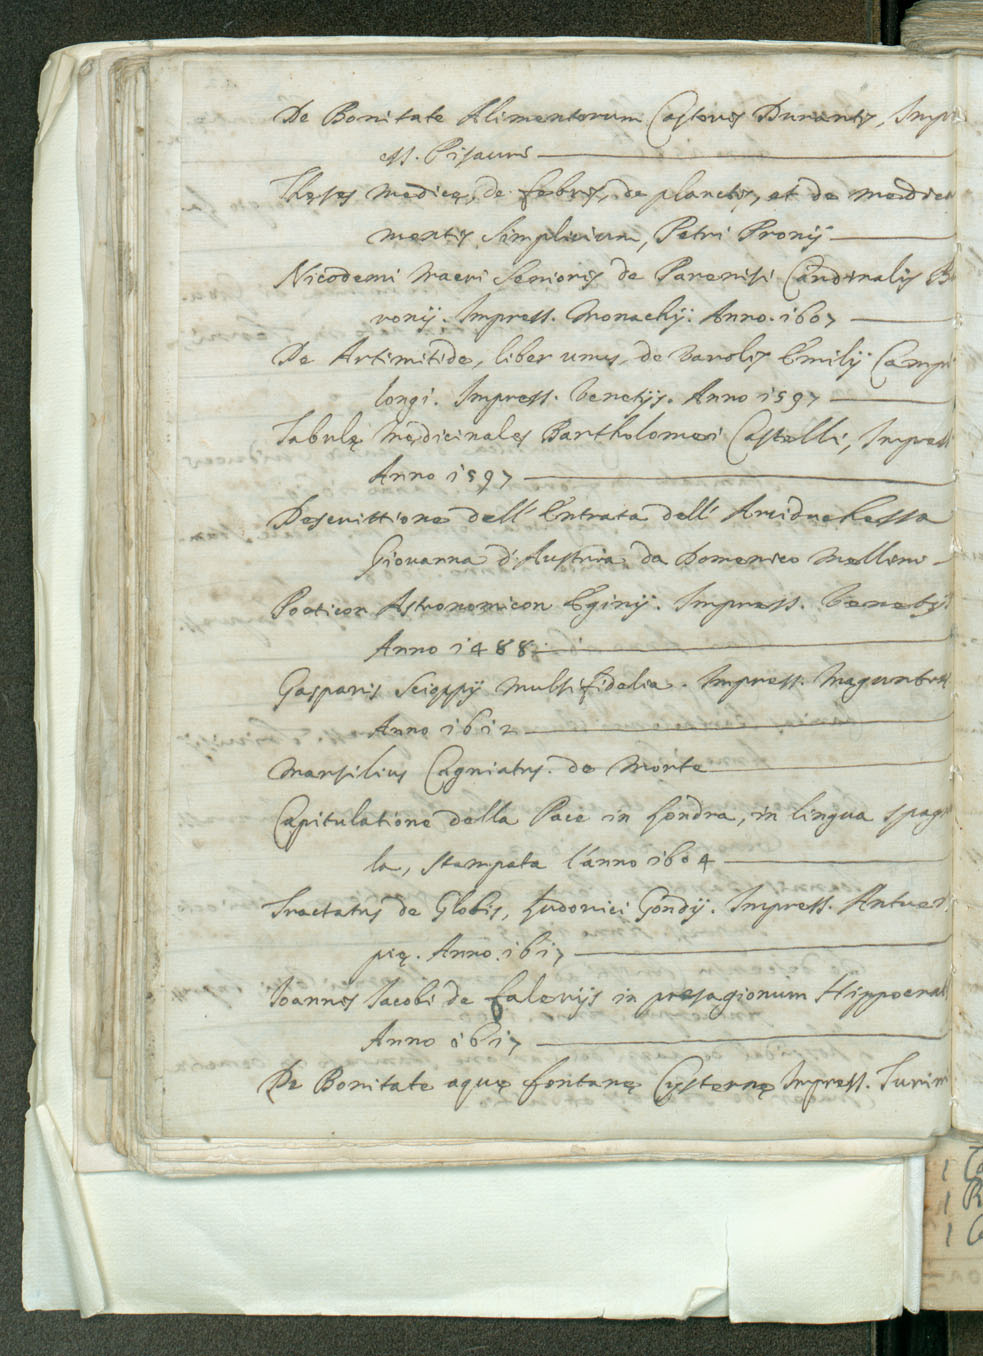 De Bonitate Alimentorum Castoris Durantis, Impr
ess. Pisauri
Theses medicę, de febris, de planctis, et de medica
mentis simplicium, Petri Pronij
Nicodemi Macri Senioris de Parenisi Cardinalis B
ronij. Impress. Monachij. Anno. 1607
De Artimitide, liber unus, de varolis Emilij Campi
longi. Impress. Venetijs. Anno 1597
Tabulę Medicinales Bartholomei Castelli, Impress
Anno 1597
Descrittione dell' Entrata dell' Arciduchessa
Giovanna d'Austria, da Domenico Mellini
Poeticon Astronomicon Eginij. Impress. Venetijs
Anno 1488
Gasparis Scioppij Multifidelia. Impress. Magunt
Anno 1612
Marsilius Cagniatus. de Morte
Capitulatione della Pace in Londra, in lingua spagn
la, stampata l'anno 1604
Tractatus de Globis, Ludovici Gondij. Impress. Antuer
pię. Anno. 1617
Joannis Jacobi de Falerijs in presagionum Hippocrat
Anno 1617
De Bonitate aquę fontanę Cysternę Impress. Turin